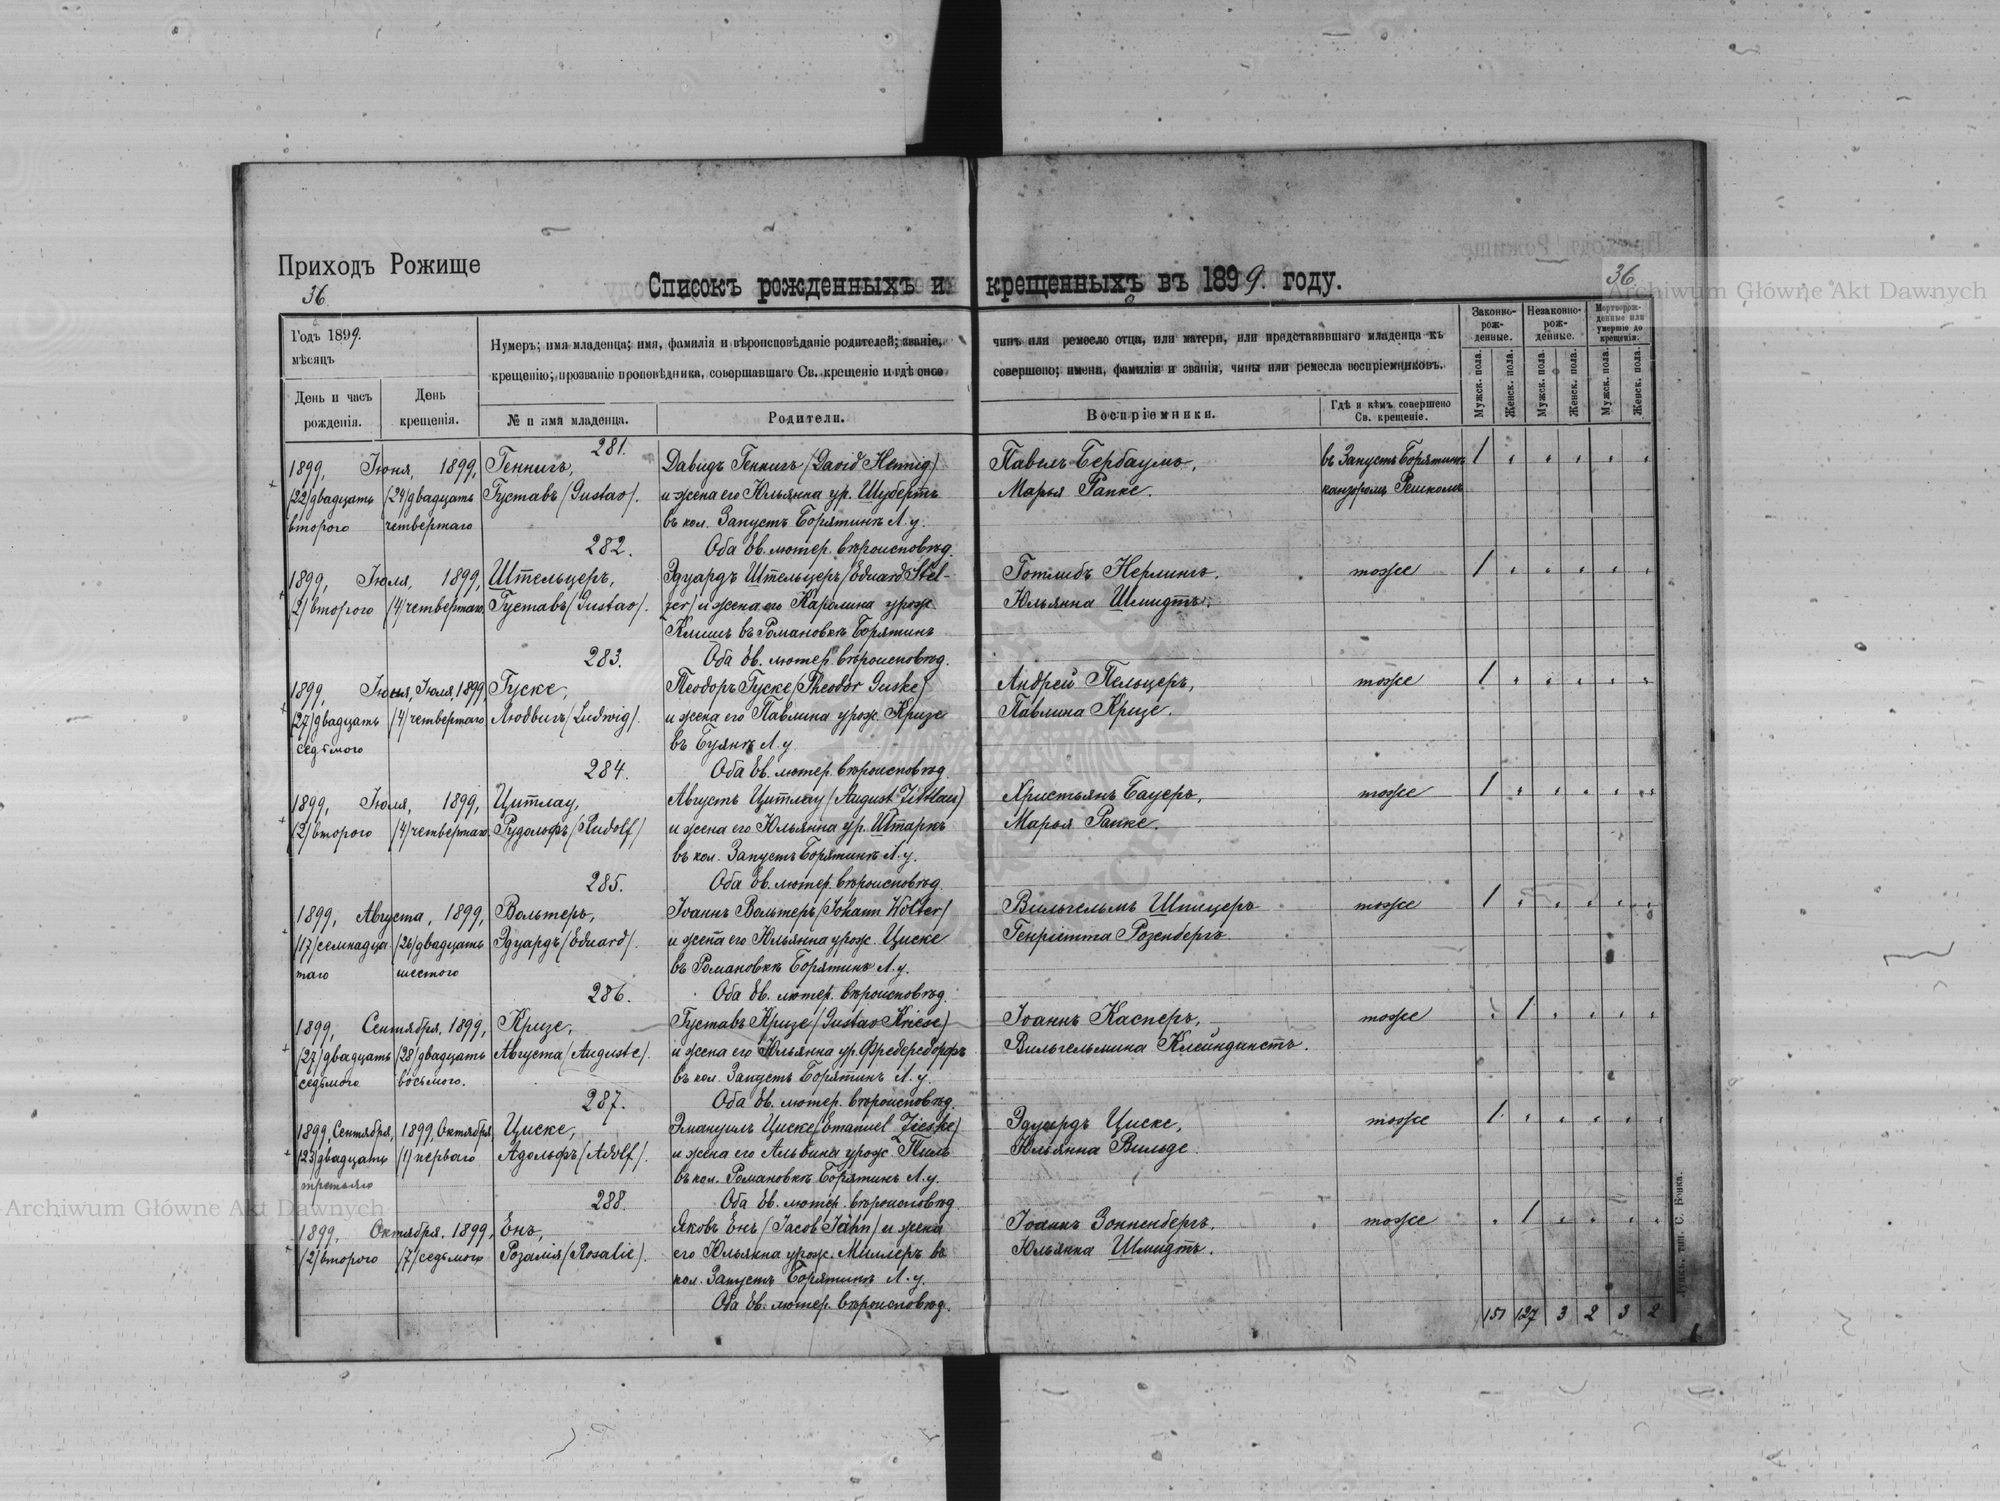 Archiwum Główne Akt Dawnych
Приходъ Рожище
36.
36.
Списокъ рожденныхъ и крещенныхъ въ 1899. году.
Годъ 1899.
мѣсяцъ
День и часъ рожденія.
День крещенія.
Нумеръ; имя младенца; имя, фамилія и вѣроисповѣданіе родителей; званіе, чинъ или ремесло отца, или матери, или представившаго младенца къ
крещенію; прозваніе проповѣдника, совершавшаго Св. крещеніе и гдѣ оное совершено; имена, фамиліи и званія, чины или ремесла воспріемниковъ.
№ и имя младенца.
Родители.
Воспріемники.
Гдѣ и кѣмъ совершено Св. крещеніе.
Законно-рож-денные.
Незаконно-рож-денные.
Мертворож-денные или умершіе до крещенія.
Мужск. пола.
Женск. пола.
Мужск. пола.
Женск. пола.
Мужск. пола.
Женск. пола.
281.
1899, Іюня, 1899, Геннигъ, Давидъ Геннигъ (David Hennig) Павелъ Бербаумъ, въ Запустъ Борятинъ 1
(22) двадцать (24) двадцать Густавъ (Gustav). и жена его Юльянна ур. Шубертъ Марья Рапке. канторомъ
второго четвертаго въ кол. Запустъ Борятинъ Л. у.
282. Оба Ев. лютер. вѣроисповѣд.
1899, Іюля, 1899, Штельцеръ, Эдуардъ Штельцеръ (Eduard Stel- Готлибъ Нерлингъ. тоже 1
(2) второго (4) четвертаго Густавъ (Gustav). zer) и жена его Каролина урож. Юльянна Шмидтъ.
въ Романовкѣ Борятинъ
283. Оба Ев. лютер. вѣроисповѣд.
1899, Іюня, Іюля 1899, Гуске, Теодоръ Гуске (Theodor Guske) Андрей Пельцеръ, тоже 1
(27) двадцать (4) четвертаго Людвигъ (Ludwig). и жена его Павлина урож. Кризе Павлина Кризе.
седьмого въ Буянѣ Л. у.
284. Оба Ев. лютер. вѣроисповѣд.
1899, Іюля, 1899, Цитлау, Августъ Цитлау (August Zittlau) Христьянъ Бауеръ, тоже 1
(2) второго (4) четвертаго. Рудольфъ (Rudolf) и жена его Юльянна ур. Штаркъ Марья Рапке.
въ кол. Запустъ Борятинъ Л. у.
285. Оба Ев. лютер. вѣроисповѣд.
1899, Августа, 1899, Вольтеръ, Іоаннъ Вольтеръ (Johann Wolter) Вильгельмъ Шпицеръ тоже 1
(17) семнадца- (26) двадцать Эдуардъ (Eduard). и жена его Юльянна урож. Циске Генріетта Розенбергъ
таго шестого въ Романовкѣ Борятинъ Л. у.
286. Оба Ев. лютер. вѣроисповѣд.
1899, Сентября, 1899, Кризе, Густавъ Кризе (Gustav Kriese) Іоаннъ Касперъ, тоже 1
(27) двадцать (28) двадцать Августа (Auguste). и жена его Юльянна ур. Фредерсдорфъ Вильгельмина Клейндинстъ.
седьмого восьмого. въ кол. Запустъ Борятинъ Л. у.
287. Оба Ев. лютер. вѣроисповѣд.
1899, Сентября, 1899, Октября, Циске, Эмануилъ Циске (Emanuel Zieske) Эдуардъ Циске, тоже 1
(23) двадцать (1) перваго Адольфъ (Adolf). и жена его Альвина урож. Тиль Юльянна Вильде
третьяго въ кол. Романовкѣ Борятинъ Л. у.
288. Оба Ев. лютер. вѣроисповѣд.
1899, Октября, 1899, Енъ, Яковъ Енъ (Jacob Jahn) и жена Іоаннъ Зонненбергъ. тоже 1
(2) второго (7) седьмого Розалія (Rosalie). его Юльянна урож. Миллеръ въ Юльянна Шмидтъ.
кол. Запустъ Борятинъ Л. у.
Оба Ев. лютер. вѣроисповѣд.
151 127 3 2 3 2
Archiwum Główne Akt Dawnych